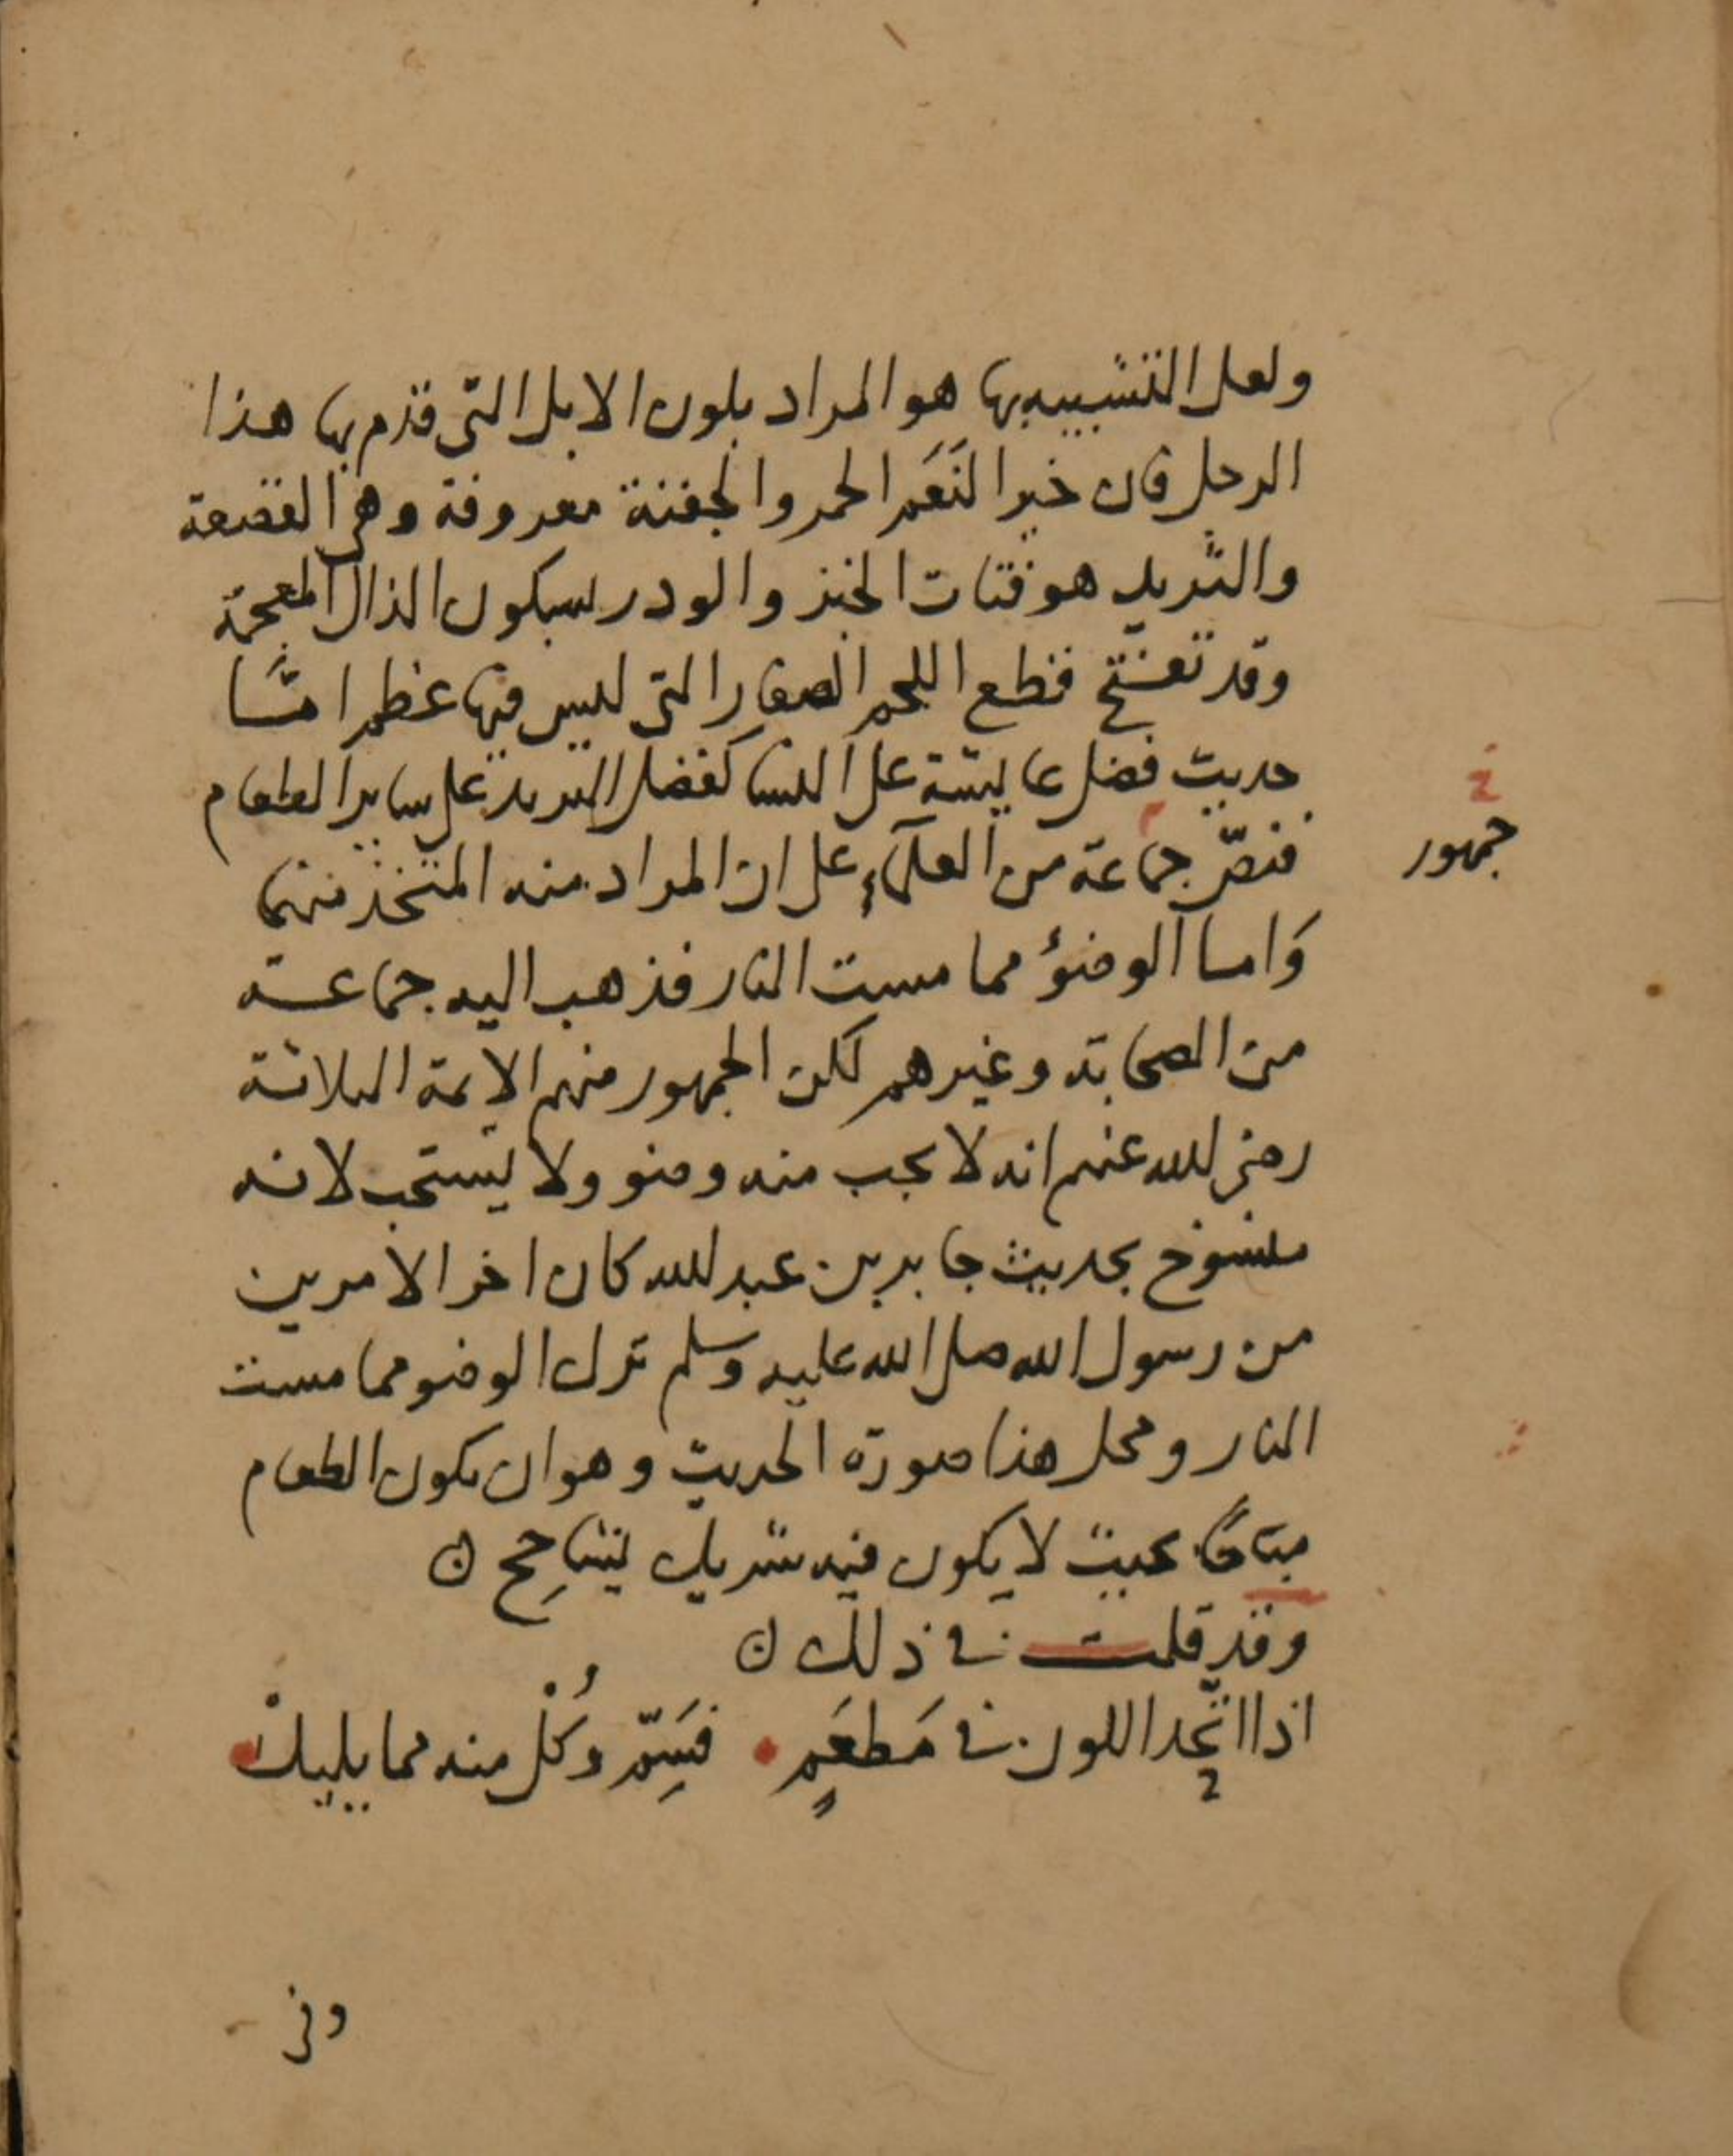 ولعل التشبيه بها هو المراد بلون الابل التي قدم بها هذا
الرجل فان خير النَعَم الحمر والجفنة معروفة وهي القصعة
والثريد هو فتات الخبز والودر بسكون الذال المعجمة
وقد تفتح قطع اللحم الصغار التي ليس فيها عظم امّا
حديث فضل عايشة على النسا كفضل الثريد على ساير الطعام
فنصّ جماعة من العلمآء على ان المراد منه المتخذ منهما
خ
جمهور
وَاما الوضؤ مما مست النار فذهب اليه جماعة
من الصحابة وغيرهم لكن الجمهور منهم الايمة الثلاثة
رضي الله عنهم انه لا يجب منه وضو ولا يستحب لانه
منسوخ بحديث جابر بن عبد الله كان اخر الامرين
من رسول الله صلى الله عليه وسلم ترك الوضو مما مست
النار ومحل هذا صورة الحديث وهو ان يكون الطعام
مباحًا بحيث لا يكون فيه شريك يشاحِح ن
وقد قلت في ذلك ن
اذا اتّحد اللون في مَطعَمٍ • فسَمِّ وكُلْ منه مما يليكْ
وفي